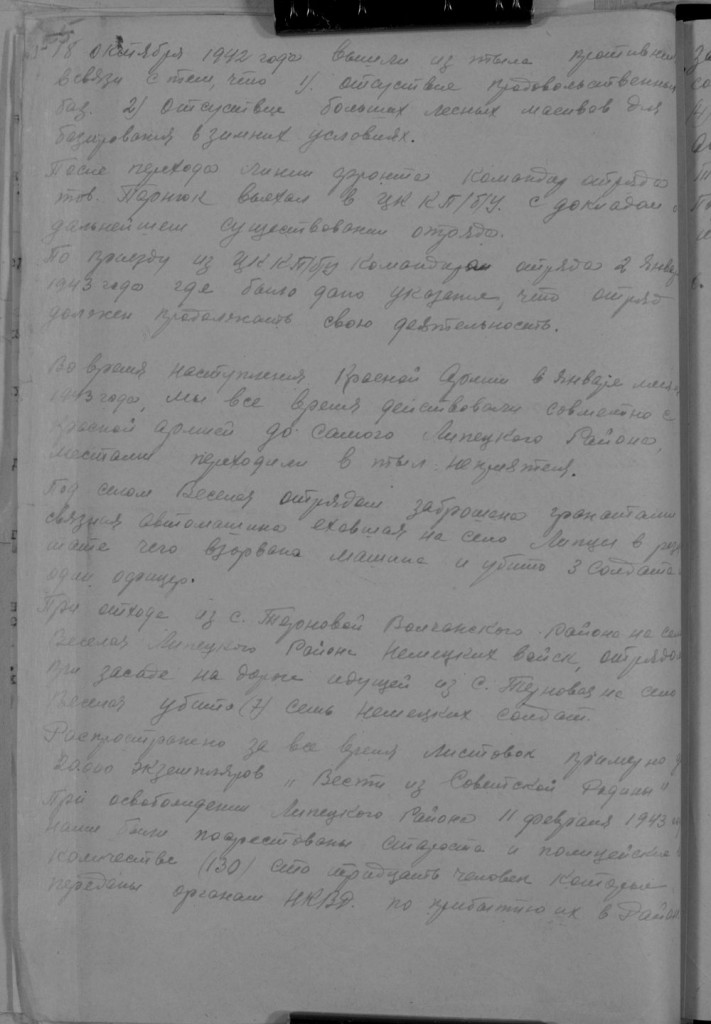 18 октября 1942 года вышли из тыла противника
в связи с тем, что 1/. отсутствие продовольственных
баз. 2/ Отсутствие больших лесных масивов для
базирования в зимних условиях.
После перехода линии фронта командир отряда
тов. выехал в ЦК КП/б/У. с докладом
дальнейшем существовании отряда.
По приезду из ЦК КП/б/у командира отряда 2 января
1943 года где было дано указание, что отряд
должен продолжать свою деятельность.
Во время наступления Красной Армии в январе
1943 года, мы все время действовали совместно с
Красной армией до самого Липецкого Района,
местами переходили в тыл неприятеля.
Под селом Веселая отрядом заброшена гранатами
связная автомашина ехавшая на село Липцы в
тате чего взорвана машина и убито 3 солдата
один офицер.
При отходе из с. Терновой Волчанского района на
Веселая Липецкого Района немецких войск, отрядом
при засаде на дороге идущей из с. Терновая на село
Веселая убито (7) семь немецких солдат.
Распространено за все время листовок примерно
экземпляров „Вести из Советской Родины"
При освобождении Липецкого Района 11 февраля 1943
нами были поарестованы староста и полицейские
количестве (130) сто тридцать человек которые
переданы органам НКВД. по прибытию их в Район